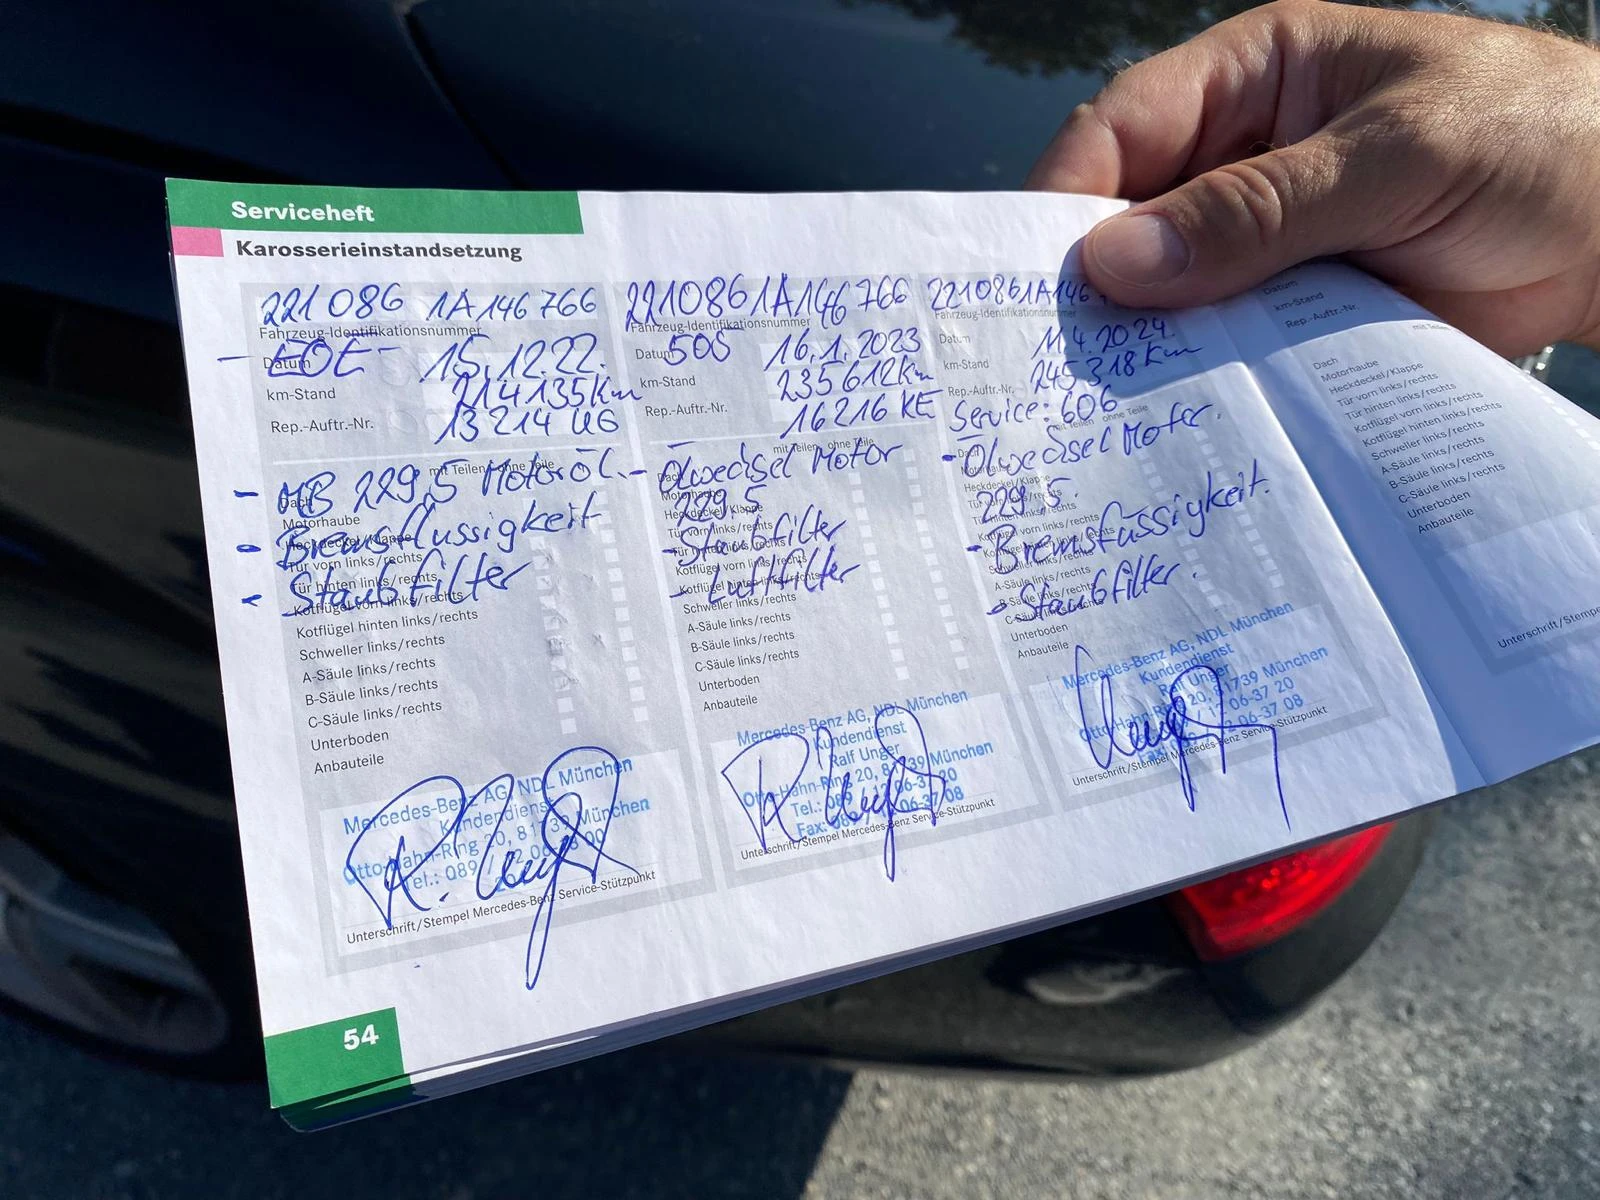 Serviceheft
Karosserieinstandsetzung
221 086 1A 146 766
Fahrzeug-Identifikationsnummer
Datum 15.12.22.
km-Stand 214135km
Rep.-Auftr.-Nr. 13214 UG
mit Teilen ohne Teile
- MB 229,5 Motoröl.
- Bremsflüssigkeit
- Staubfilter
Dach
Motorhaube
Heckdeckel/Klappe
Tür vorn links/rechts
Tür hinten links/rechts
Kotflügel vorn links/rechts
Kotflügel hinten links/rechts
Schweller links/rechts
A-Säule links/rechts
B-Säule links/rechts
C-Säule links/rechts
Unterboden
Anbauteile
Mercedes-Benz AG, NDL München
Kundendienst
Otto-Hahn-Ring 20, 81739 München
Tel.: 089
Unterschrift/Stempel Mercedes-Benz Service-Stützpunkt
221086 1A146 766
Fahrzeug-Identifikationsnummer
Datum 505 16.1.2023
km-Stand 235612km
Rep.-Auftr.-Nr. 16216 KE
mit Teilen ohne Teile
- Ölwechsel Motor
229.5
- Staubfilter
- Luftfilter
Dach
Motorhaube
Heckdeckel/Klappe
Tür vorn links/rechts
Tür hinten links/rechts
Kotflügel vorn links/rechts
Kotflügel hinten links/rechts
Schweller links/rechts
A-Säule links/rechts
B-Säule links/rechts
C-Säule links/rechts
Unterboden
Anbauteile
Mercedes-Benz AG, NDL München
Kundendienst
Ralf Unger
Otto-Hahn-Ring 20, 81739 München
Tel.: 089
Fax: 089
Unterschrift/Stempel Mercedes-Benz Service-Stützpunkt
221086 1A146
Fahrzeug-Identifikationsnummer
Datum 11.4.2024.
km-Stand 245318km
Rep.-Auftr.-Nr.
Service: 606
mit Teilen ohne Teile
- Ölwechsel Motor.
229.5.
- Bremsflüssigkeit.
- Staubfilter.
Dach
Motorhaube
Heckdeckel/Klappe
Tür vorn links/rechts
Kotflügel vorn links/rechts
Schweller links/rechts
A-Säule links/rechts
B-Säule links/rechts
C-Säule
Unterboden
Anbauteile
Mercedes-Benz AG, NDL München
Kundendienst
Ralf Unger
Otto-Hahn-Ring 20, 81739 München
06-37 20
Fax: 06-37 08
Unterschrift/Stempel Mercedes-Benz Service-Stützpunkt
Datum
km-Stand
Rep.-Auftr.-Nr.
mit Teilen
Dach
Motorhaube
Heckdeckel/Klappe
Tür vorn links/rechts
Tür hinten links/rechts
Kotflügel vorn links/rechts
Kotflügel hinten links/rechts
Schweller links/rechts
A-Säule links/rechts
B-Säule links/rechts
C-Säule links/rechts
Unterboden
Anbauteile
54